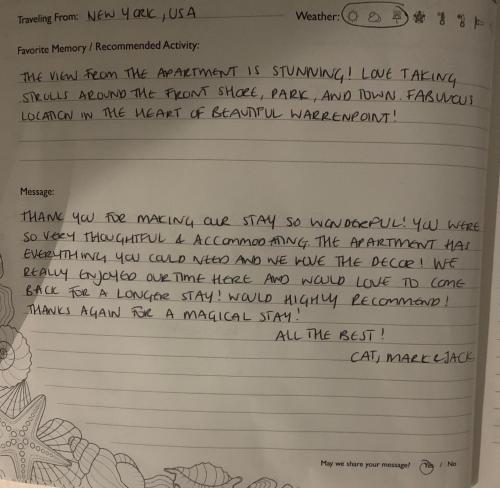 Traveling From: NEW YORK, USA Weather:
Favorite Memory / Recommended Activity:
THE VIEW FROM THE APARTMENT IS STUNNING! LOVE TAKING
STROLLS AROUND THE FRONT SHORE, PARK, AND TOWN. FABULOUS
LOCATION IN THE HEART OF BEAUTIFUL WARRENPOINT!
Message:
THANK YOU FOR MAKING OUR STAY SO WONDERFUL! YOU WERE
SO VERY THOUGHTFUL & ACCOMMODATING. THE APARTMENT HAS
EVERYTHING YOU COULD NEED AND WE LOVE THE DECOR! WE
REALLY ENJOYED OUR TIME HERE AND WOULD LOVE TO COME
BACK FOR A LONGER STAY! WOULD HIGHLY RECOMMEND!
THANKS AGAIN FOR A MAGICAL STAY!
ALL THE BEST!
CAT, MARK & JACK
May we share your message? Yes / No